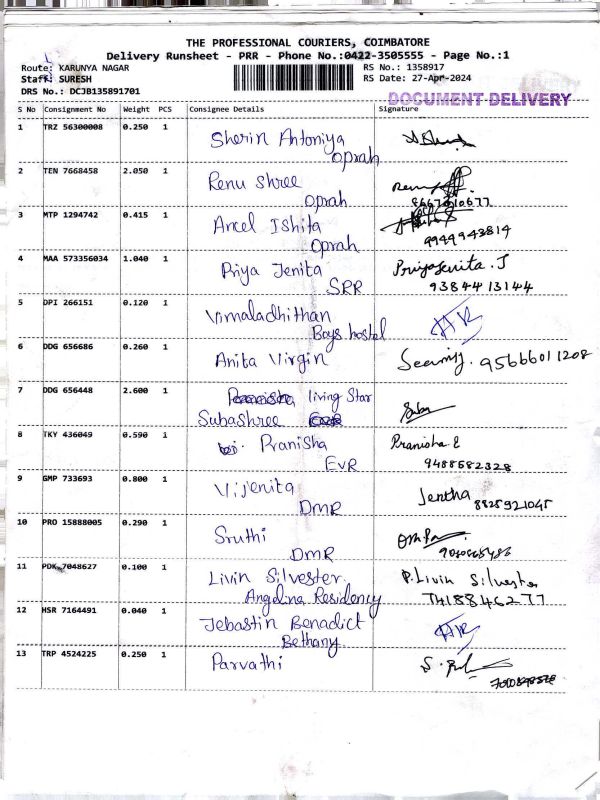 THE PROFESSIONAL COURIERS, COIMBATORE
Delivery Runsheet - PRR - Phone No.:0422-3505555 - Page No.:1
Route: KARUNYA NAGAR RS No.: 1358917
Staff: SURESH RS Date: 27-Apr-2024
DRS No.: DCJB135891701
DOCUMENT DELIVERY
S No Consignment No Weight PCS Consignee Details Signature
1 TRZ 56300008 0.250 1 Sherin Antoniya
Oprah
2 TEN 7668458 2.050 1 Renu Shree
Oprah
3 MTP 1294742 0.415 1 Ancel Ishita
Oprah 9949943814
4 MAA 573356034 1.040 1 Priya Jenita Priyajenita.J
SRR 9384413144
5 DPI 266151 0.120 1 Vimaladhithan
Boys hostel
6 DDG 656686 0.260 1 Anita Virgin 95666011208
7 DDG 656448 2.600 1 living Star
Subashree
8 TKY 436049 0.590 1 Pranisha Pranisha E
EVR 9488582328
9 GMP 733693 0.800 1 Vijenita Jentha
DMR 8825921045
10 PRO 15888005 0.290 1 Sruthi
DMR
11 PDK 7048627 0.100 1 Livin Silvester. P. Livin Silvester
Angelina Residency 7418846277
12 HSR 7164491 0.040 1 Jebastin Benadict
Bethany
13 TRP 4524225 0.250 1 Parvathi